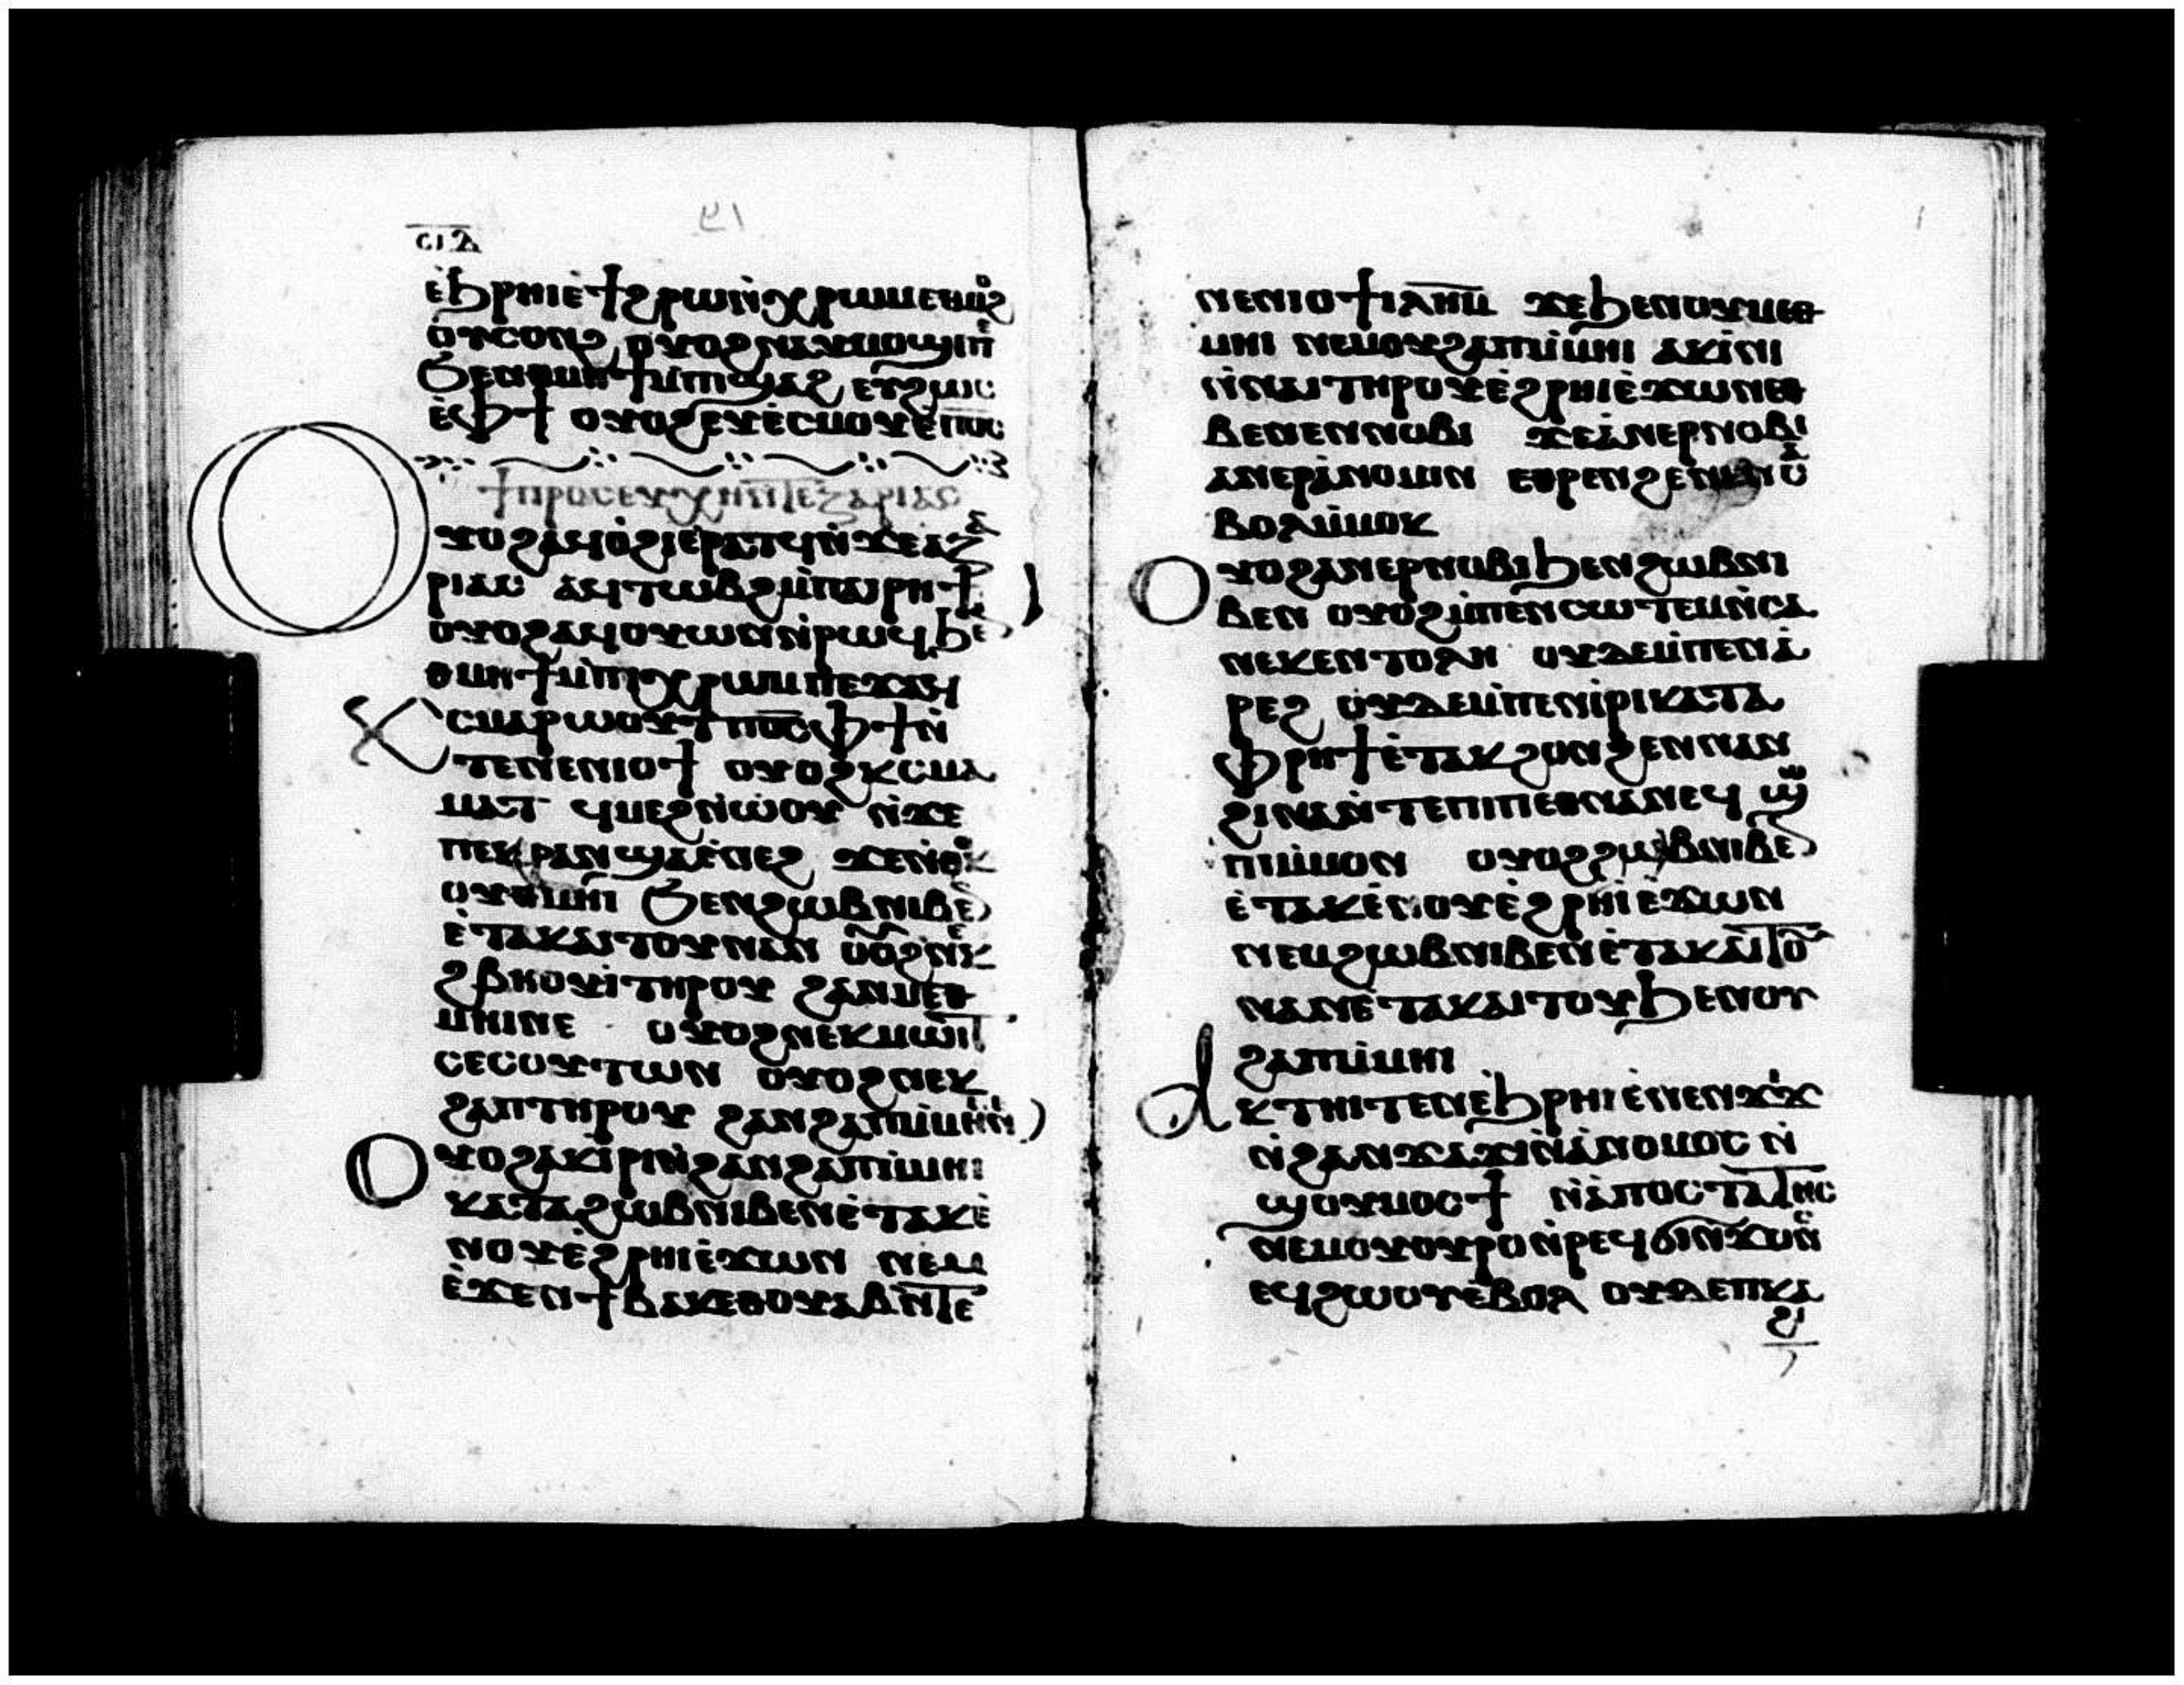 ⲥⲓⲇ
ⲉ̀ϧⲣⲏⲓⲉ̀ϯϩⲣⲱⲛ̀ⲭⲣⲱⲙⲉⲑⲙⲟϩ
ⲟⲩⲥⲟⲛϩ ⲟⲩⲟϩⲛⲁⲩⲙⲟϣⲓⲡⲉ
ϧⲉⲛⲑⲙⲏϯⲙ̀ⲡⲓϣⲁϩ ⲉⲩϩⲱⲥ
ⲉ̀ⲫϯ ⲟⲩⲟϩⲉⲩⲉ̀ⲥⲙⲟⲩⲉ̀ⲡⲟ̅ⲥ̅
ϯⲡⲣⲟⲥⲉⲩⲭⲏⲛ̀ⲧⲉⲍⲁⲣⲓⲁⲥ
ⲟⲩⲟϩⲁϥⲟ̀ϩⲓⲉ̀ⲣⲁⲧϥⲛ̀ϫⲉⲁⲍⲁ
ⲣⲓⲁⲥ ⲁϥⲧⲱⲃϩⲙ̀ⲡⲁⲓⲣⲏϯ
ⲟⲩⲟϩⲁϥⲟⲩⲱⲛⲛ̀ⲣⲱϥϧⲉ
ⲑⲙⲏϯⲙ̀ⲡⲓⲭⲣⲱⲙⲡⲉϫⲁϥ
ⲭⲥⲙⲁⲣⲱⲟⲩⲧⲡⲟ̅ⲥ̅ⲫϯⲛ̀
ⲧⲉⲛⲉⲛⲓⲟϯ ⲟⲩⲟϩⲕⲥⲙⲁ
ⲙⲁⲧ ϥⲙⲉϩⲛ̀ⲱ̀ⲟⲩ ⲛ̀ϫⲉ
ⲡⲉⲕⲣⲁⲛϣⲁⲉ̀ⲛⲉϩ ϫⲉⲛ̀ⲑⲟⲕ
ⲟⲩⲑⲙⲏⲓ ϧⲉⲛϩⲱⲃⲛⲓⲃⲉ
ⲉ̀ⲧⲁⲕⲁⲓⲧⲟⲩⲛⲁⲛ ⲟⲩⲟϩⲛⲉⲕ
ϩⲃⲏⲟⲩⲓ̀ⲧⲏⲣⲟⲩ ϩⲁⲛⲙⲉⲑ
ⲙⲏⲓⲛⲉ ⲟⲩⲟϩⲛⲉⲕⲙⲱⲓⲧ
ⲥⲉⲥⲟⲩⲧⲱⲛ ⲟⲩⲟϩⲛⲉⲕ
ϩⲁⲡⲧⲏⲣⲟⲩ ϩⲁⲛϩⲁⲡⲙ̀ⲙⲏⲓⲛⲉ
ⲟⲩⲟϩⲁⲕⲓ̀ⲣⲓⲛ̀ϩⲁⲛϩⲁⲡⲙ̀ⲙⲏⲓ
ⲕⲁⲧⲁϩⲱⲃⲛⲓⲃⲉⲛⲉ̀ⲧⲁⲕⲉ̀
ⲛⲟⲩⲉ̀ϩⲣⲏⲓⲉ̀ϫⲱⲛ ⲛⲉⲙ
ⲉ̀ϫⲉⲛϯⲃⲁⲕⲉⲑⲟⲩⲁⲃⲛ̀ⲧⲉ
ⲛⲉⲛⲓⲟϯⲓⲗⲏⲙ ϫⲉϧⲉⲛⲟⲩⲙⲉⲑ
ⲙⲏⲓ ⲛⲉⲙⲟⲩϩⲁⲡⲙ̀ⲙⲏⲓ ⲁⲕⲓ̀ⲛⲓ
ⲛ̀ⲛⲁⲓⲧⲏⲣⲟⲩⲉ̀ϩⲣⲏⲓⲉ̀ϫⲱⲛⲉⲑ
ⲃⲉⲛⲉⲛⲛⲟⲃⲓ ϫⲉⲁ̀ⲛⲉⲣⲛⲟⲃⲓ
ⲁⲛⲉⲣⲁ̀ⲛⲟⲙⲓⲛ ⲉⲑⲣⲉⲛϩⲉⲛⲑⲏⲛⲟⲩ
ⲃⲟⲗⲙ̀ⲙⲟⲕ
ⲟⲩⲟϩⲁⲛⲉⲣⲛⲟⲃⲓϧⲉⲛϩⲱⲃⲛⲓ
ⲃⲉⲛ ⲟⲩⲟϩⲙ̀ⲡⲉⲛⲥⲱⲧⲉⲙⲛ̀ⲥⲁ
ⲛⲉⲕⲉⲛⲧⲟⲗⲏ ⲟⲩⲇⲉⲙ̀ⲡⲉⲛⲁ̀
ⲣⲉϩ ⲟⲩⲇⲉⲙ̀ⲡⲉⲛⲓ̀ⲣⲓⲕⲁⲧⲁ
ⲫⲣⲏϯⲉ̀ⲧⲁⲕϩⲟⲛϩⲉⲛⲛⲁⲛ
ϩⲓⲛⲁⲛ̀ⲧⲉⲡⲓⲡⲉⲑⲛⲁⲛⲉϥ ϣⲱ
ⲡⲓⲙ̀ⲙⲟⲛ ⲟⲩⲟϩϩⲱⲃⲛⲓⲃⲉ
ⲉ̀ⲧⲁⲕⲉ̀ⲛⲟⲩⲉ̀ϩⲣⲏⲓⲉ̀ϫⲱⲛ
ⲛⲉⲙϩⲱⲃⲛⲓⲃⲉⲛⲉ̀ⲧⲁⲕⲁⲓⲧⲟⲩ
ⲛⲁⲛⲉ̀ⲧⲁⲕⲁⲓⲧⲟⲩϧⲉⲛⲟⲩ
ϩⲁⲡⲙ̀ⲙⲏⲓ
ⲁⲕⲧⲏⲓⲧⲉⲛⲉ̀ϧⲣⲏⲓⲉ̀ⲛⲉⲛϫⲓϫ
ⲛ̀ϩⲁⲛϫⲁϫⲓⲛ̀ⲁ̀ⲛⲟⲙⲟⲥ ⲛ̀
ϣⲟⲩⲙⲟⲥϯ ⲛ̀ⲁ̀ⲡⲟⲥⲧⲁⲧⲏⲥ
ⲛⲉⲙⲟⲩⲟⲩⲣⲟⲛ̀ⲣⲉϥϭⲓⲛ̀ϫⲟⲛⲥ
ⲉϥϩⲱⲟⲩⲉ̀ⲃⲟⲗ ⲟⲩⲇⲉⲡⲕⲁ
ϩⲓ